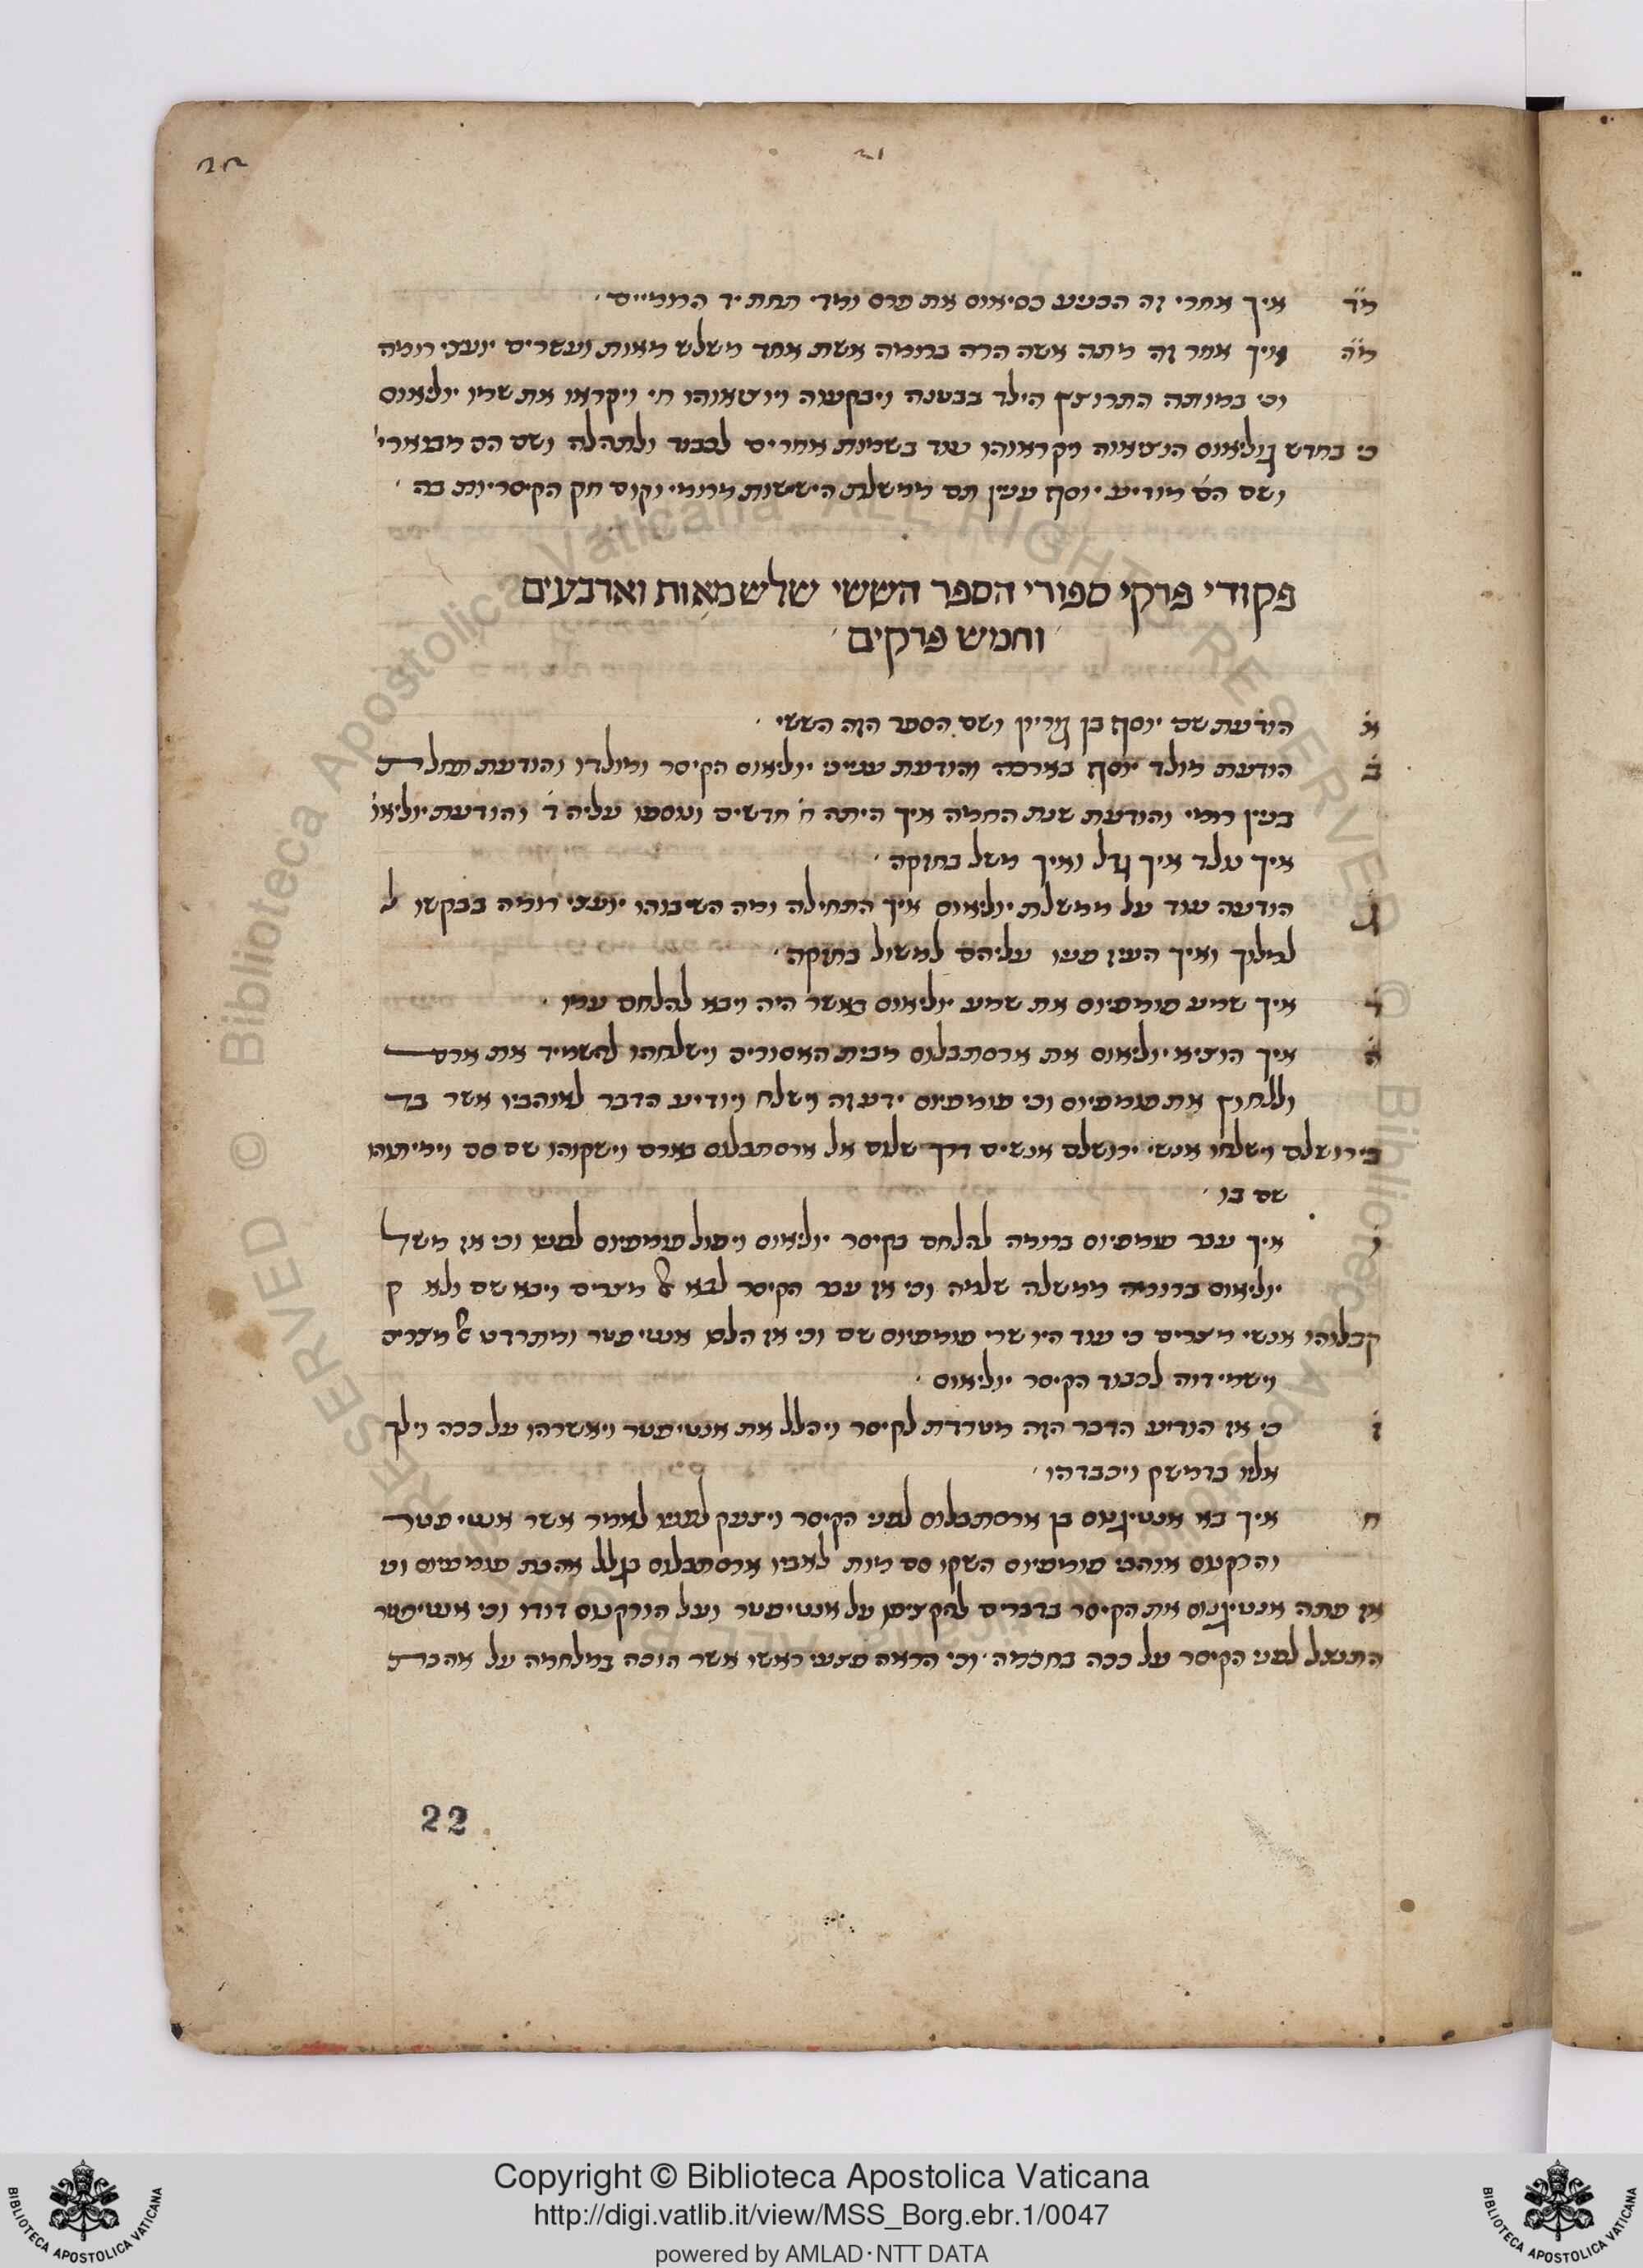 מ״ד איך אחרי זה הכניע כסיאוס את פרס ומדי תחת יד הרומיים
מ״ה ואיך אחר זה מתה אשה הרה ברומה אשת אחד משלש מאות ועשרים יועצי רומה
וכי במותה התרוצץ הילד בבטנה ויבקעוה ויוציאוהו חי ויקראו את שמו יוליאוס
כי בחדש יוליאוס הוציאוה וקראוהו עוד בשמות אחרים לכבוד ולתהלה ושם הם מבוארי׳
ושם הם מודיע יוסף ענין תם ממשלת הישישות מרומי וקום חק הקיסריות בה
פקודי פרקי ספורי הספר הששי שלש מאות וארבעים
וחמש פרקים
א הודעת שם יוסף בן גוריון ושם הספר הזה הששי
ב הודעת מולד יוסף בארכה והודעת ענייני יוליאוס הקיסר ומולדו והודעת תחלת
בנין רומי והודעת שנת החמה איך היתה ח׳ חדשים ונוספו עליה ד׳ והודעת יוליאו׳
איך נולד איך גדל ואיך משל בחזקה
ג הודעה עוד על ממשלת יוליאוס איך התחילה ומה השיבוהו יועצי רומה בבקשו ל
למלוך ואיך העיז פניו עליהם למשול בחזקה
ד איך שמע פומפיוס את שמע יוליאוס באשר היה ויבא להלחם עמו
ה איך הוציא יוליאוס את ארסתבלוס מבית האסורים וישלחהו להשמיד את ארם
וללחוץ את פומפיוס וכי פומפיוס ידע זה וישלח ויודיע הדבר לאוהביו אשר בי
בירושלם וישלחו אנשי ירושלם אנשים דרך שלום אל ארסתבלוס בארם וישקוהו שם סם וימיתוהו
שם בו
ו איך עבר פומפיוס ברומה להלחם בקיסר יוליאוס ויפול פומפיוס לפניו וכי אז משל
יוליאוס ברומה ממשלה שלמה וכי אז עבר הקיסר לבא אל מצרים ויבא שם ולא ק
קבלוהו אנשי מצרים כי עוד היו שרי פומפיוס שם וכי אז הלכו אנטיפטר ומתרדט אל מצרים
וישמידוה לכבוד הקיסר יוליאוס
ז כי אז הודיע הדבר הזה מטרדת לקיסר ויהלל את אנטיפטר ויאשרהו על ככה וילך
אליו בדמשק ויכבדהו
ח איך בא אנטיגנוס בן ארסתבלוס לפני הקיסר ויצעק לפניו לאמר אשר אנטיפטר
והורקנוס אוהבי פומפיוס השקו סם מות לאביו ארסתבלוס בגלל אהבת פומפיוס וכי
אז פתה אנטיגנוס את הקיסר בדברים להקציפו על אנטיפטר ועל הורקנוס דודו וכי אנטיפטר
התנצל לפני הקיסר על ככה בחכמה וכי הראה פצעי ראשו אשר הוכה במלחמה על אהבת
22
Copyright © Biblioteca Apostolica Vaticana
http://digi.vatlib.it/view/MSS_Borg.ebr.1/0047
powered by AMLAD·NTT DATA